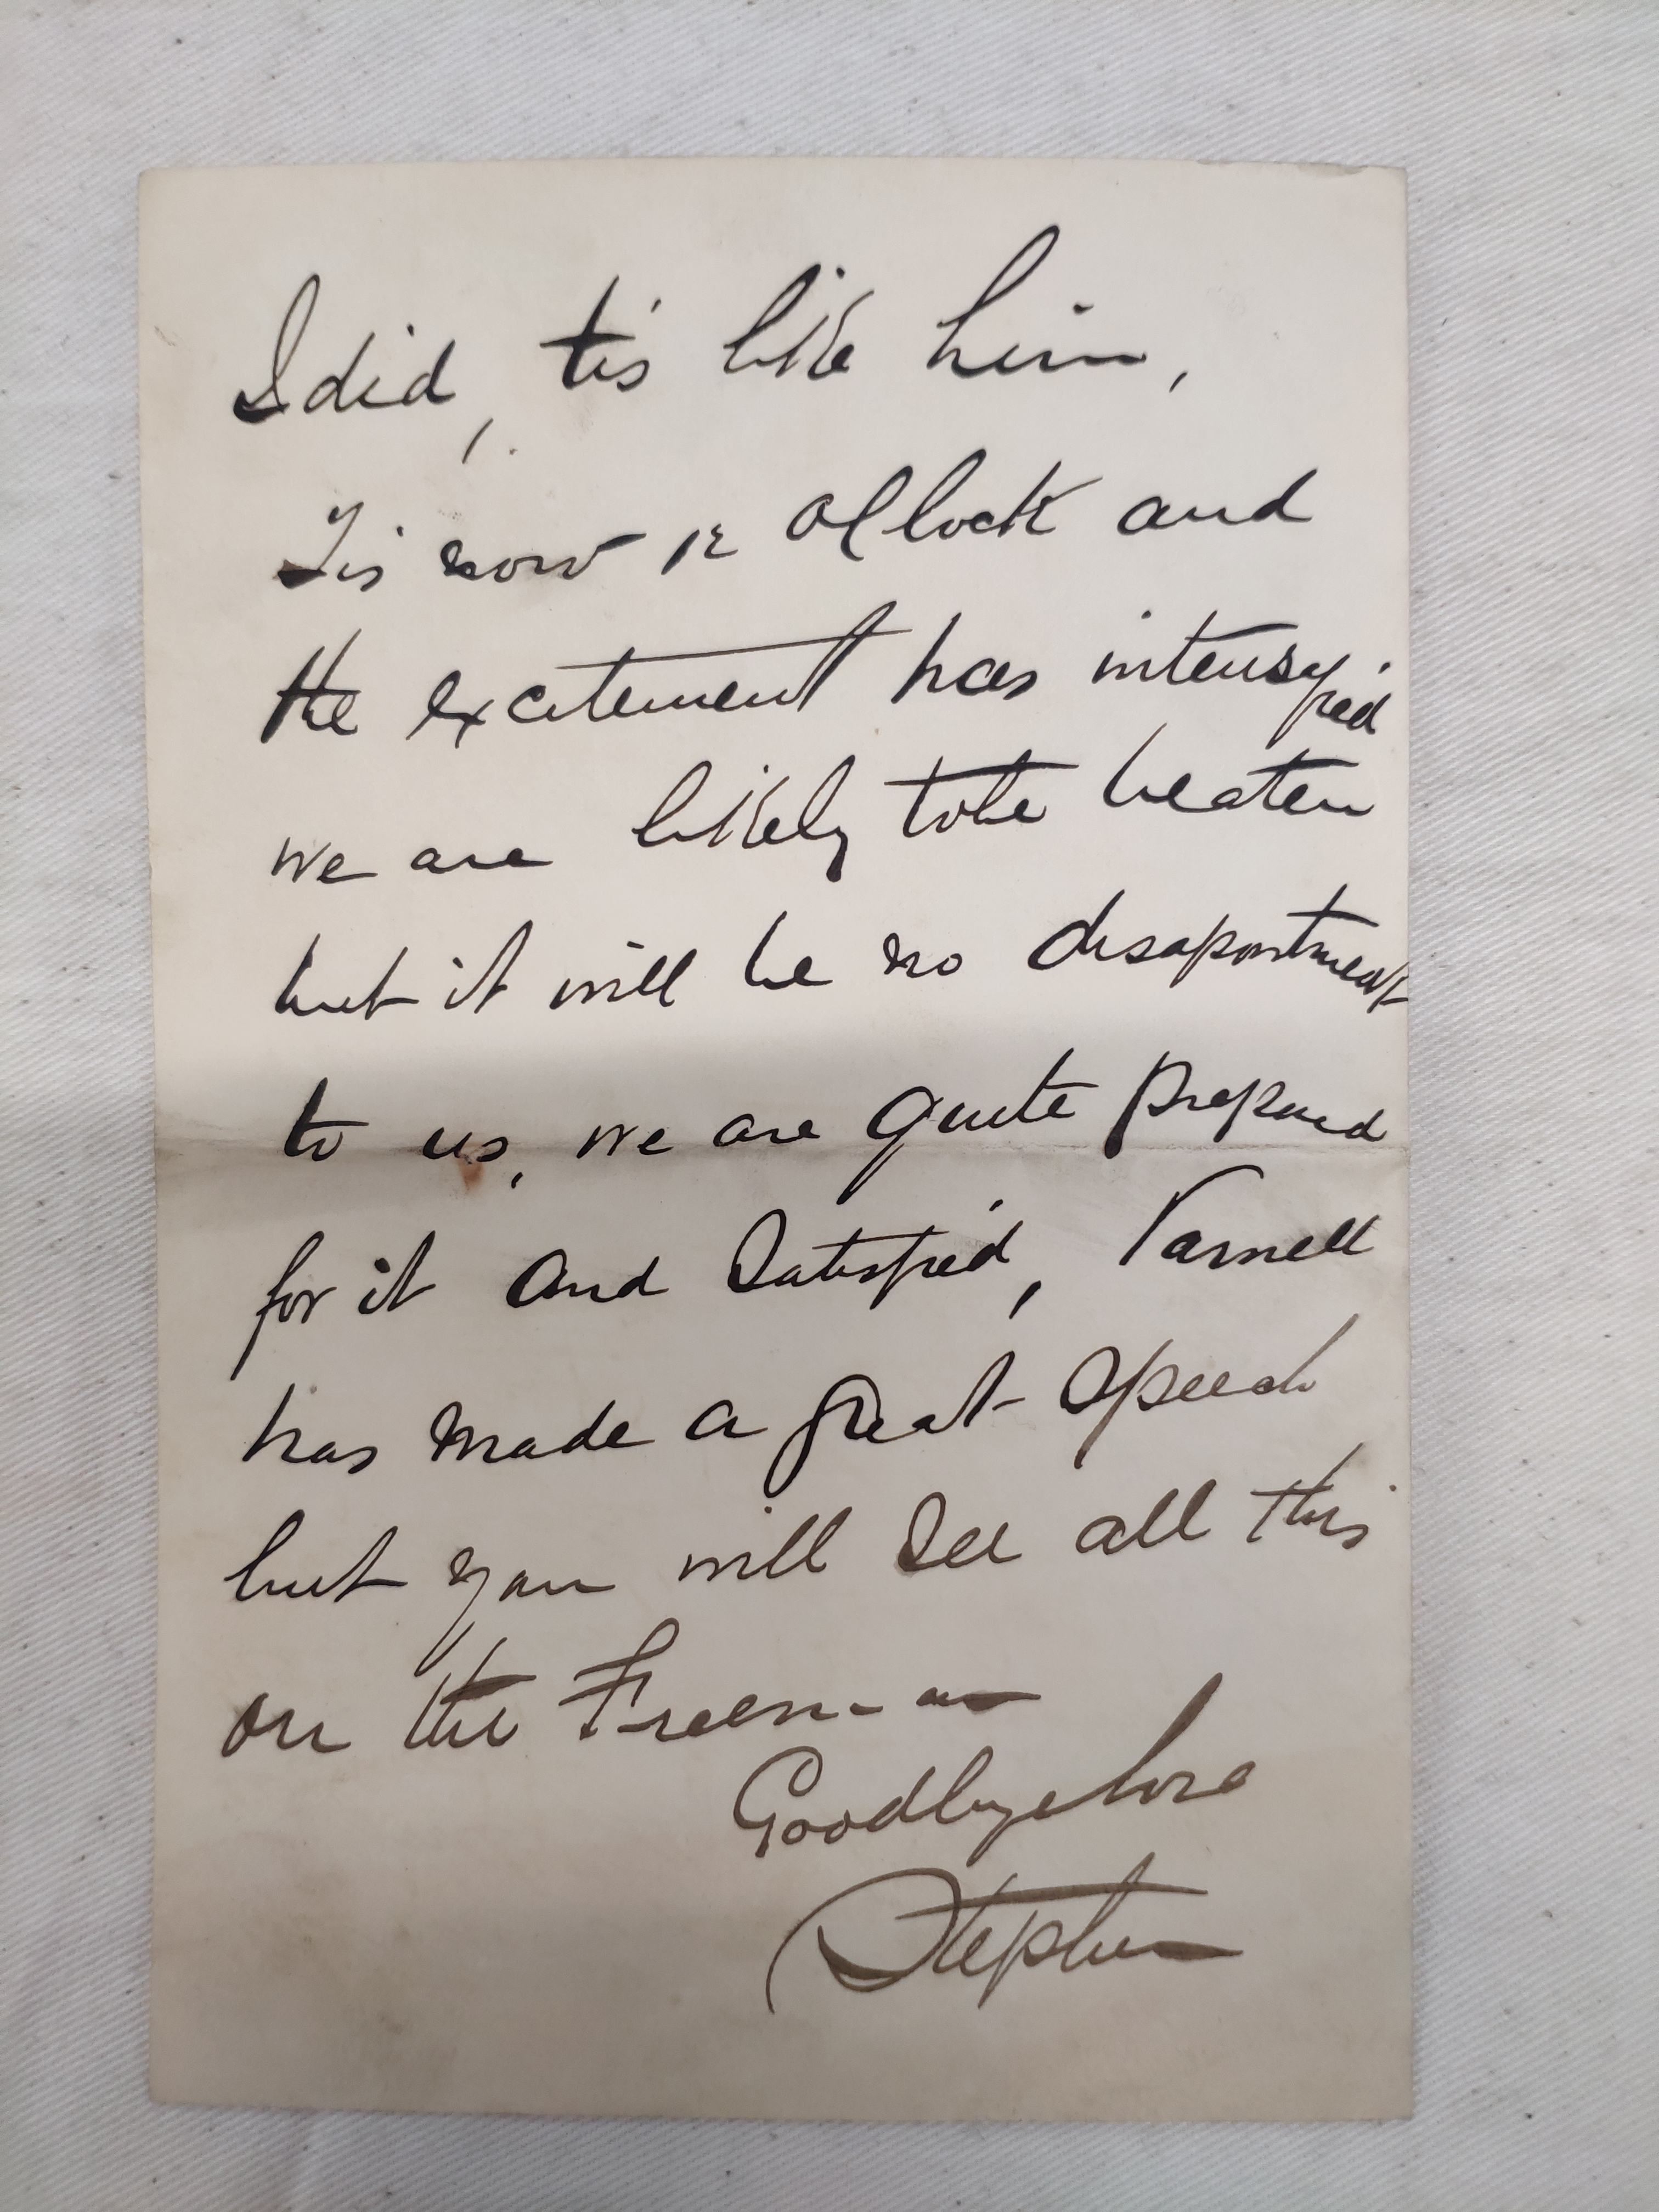 I did, tis' like him,
Tis now 12 Oclock and
the excitement has intensified
we are likely to be beaten
but it will be no disapointment
to us, we are quite prepared
for it and Satisfied, Parnell
has made a great Speech
but you will See all this
on the Freeman
Goodbye love
Stephen